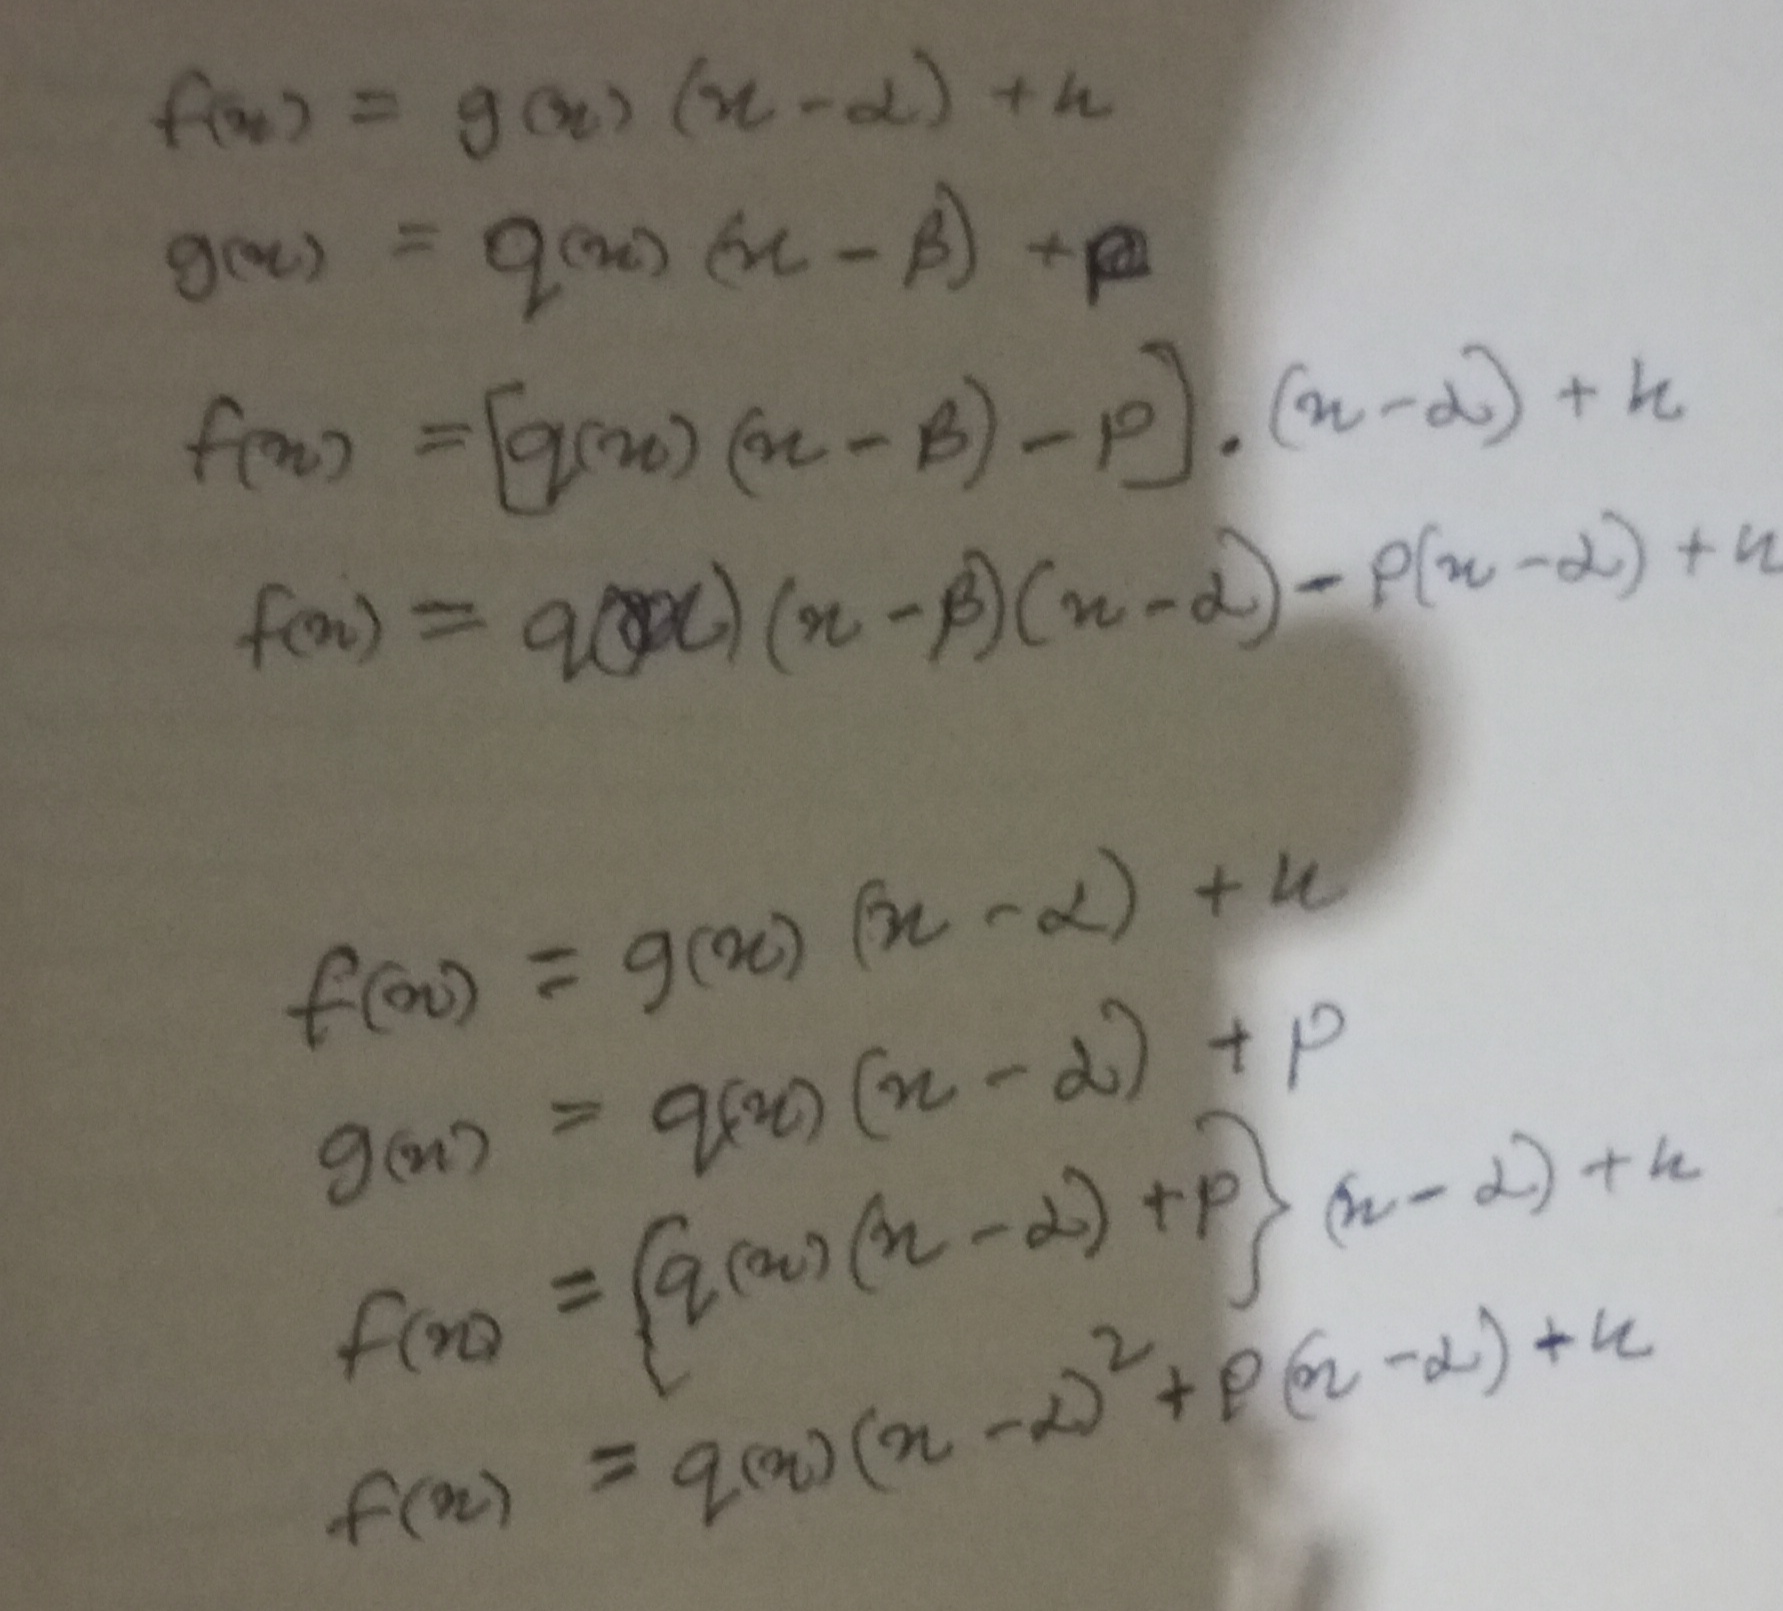 f(x) = g(x) (x-α) + k
g(x) = q(x) (x - β) + p
f(x) = [q(x) (x - β) - p] . (x-α) + k
f(x) = q(x) (x - β)(x-α) - p(x-α) + k
f(x) = g(x) (x - α) + k
g(x) = q(x) (x - α) + p
f(x) = {q(x) (x - α) + p} (x - α) + k
f(x) = q(x) (x - α)² + p(x - α) + k